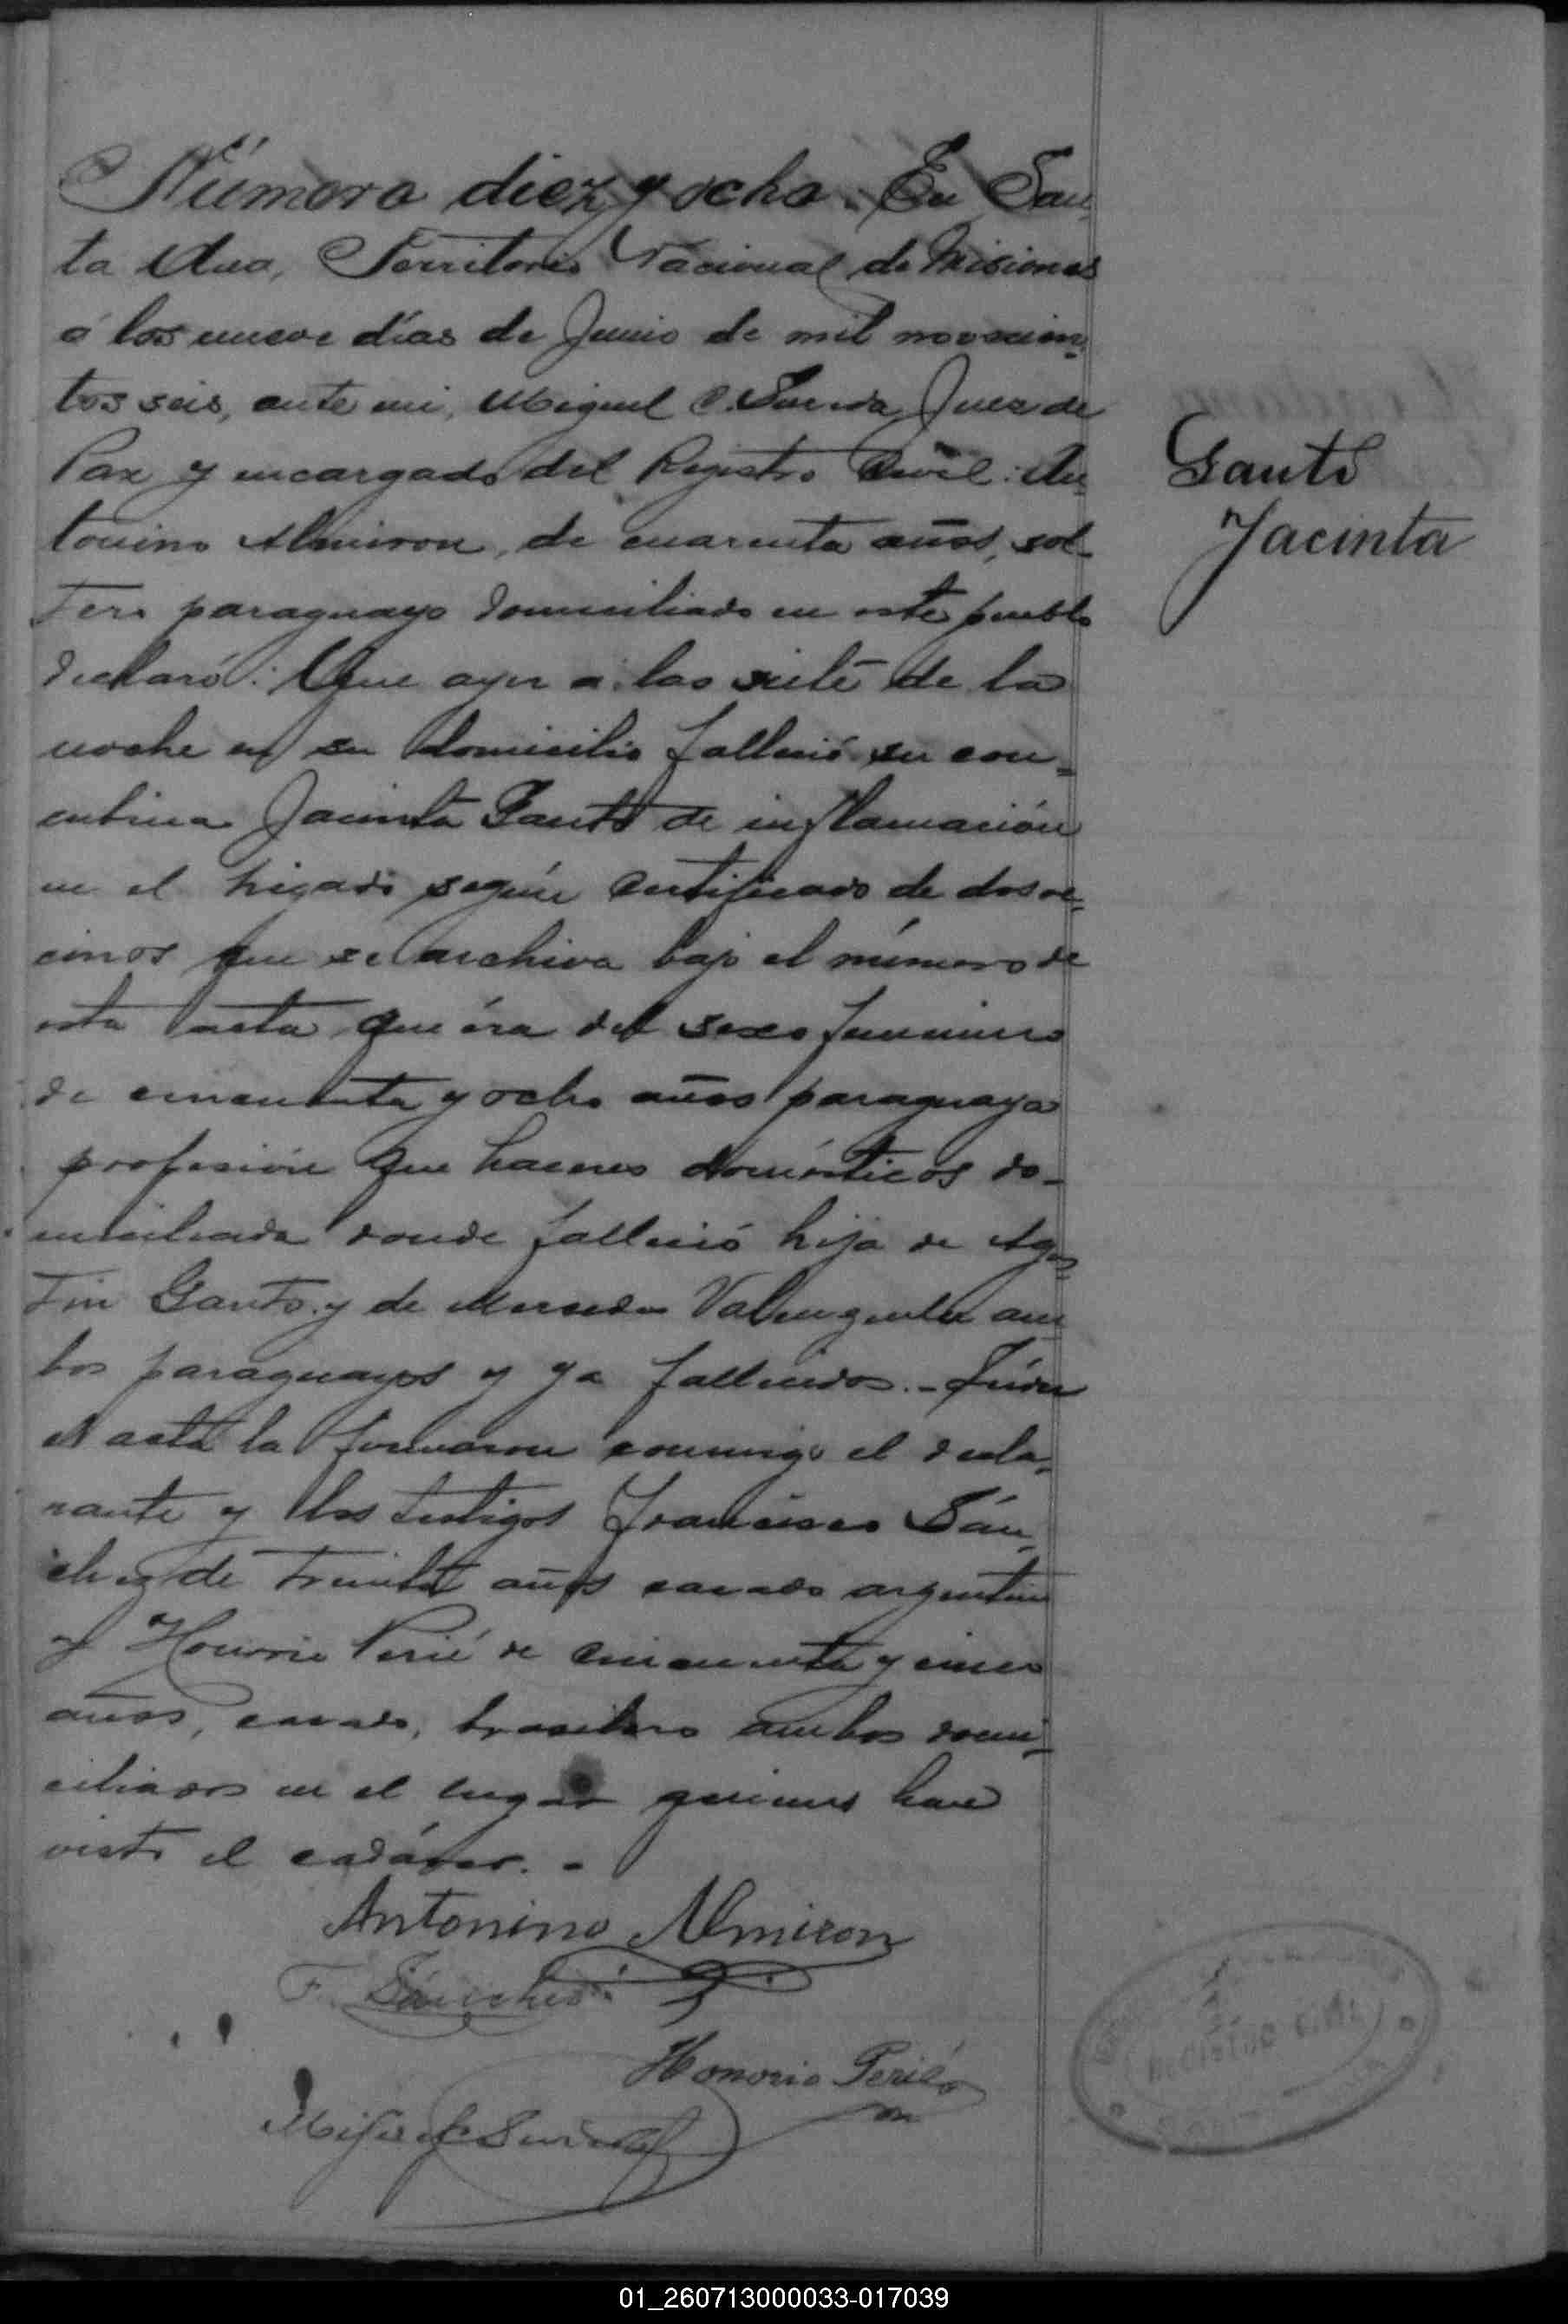 Número diez y ocho. En San-
ta Ana, Territorio Nacional de Misiones
á los nueve días de Junio de mil novecien-
tos seis, ante mi, Miguel C. Juez de
Paz y encargado del Registro Civil: An-
tonino Almiron, de cuarenta años, sol-
tero paraguayo domiciliado en este pueblo
declaró: Que ayer a las siete de la
noche en su domicilio falleció su con-
cubina Jacinta Gauto de inflamación
en el higado según certificado de dos ve-
cinos que se archiva bajo el número de
esta acta que éra del sexo femenino
de cincuenta y ocho años paraguaya
profesión que haceres domésticos do-
miciliada donde falleció hija de Agus-
tin Gauto y de Mercedes am-
bos paraguayos y ya fallecidos.-
el acta la firmaron conmigo el decla-
rante y los testigos Francisco Sán-
chez de treinta años casado argentino
y Honorio Perié de cincuenta y cinco
años, casado, brasilero ambos domi-
ciliados en el lugar quienes han
visto el cadáver. -
Gauto
Jacinta
Antonino Almiron
F. Sánchez
Honorio Perié
REGISTRO CIVIL
01_260713000033-017039